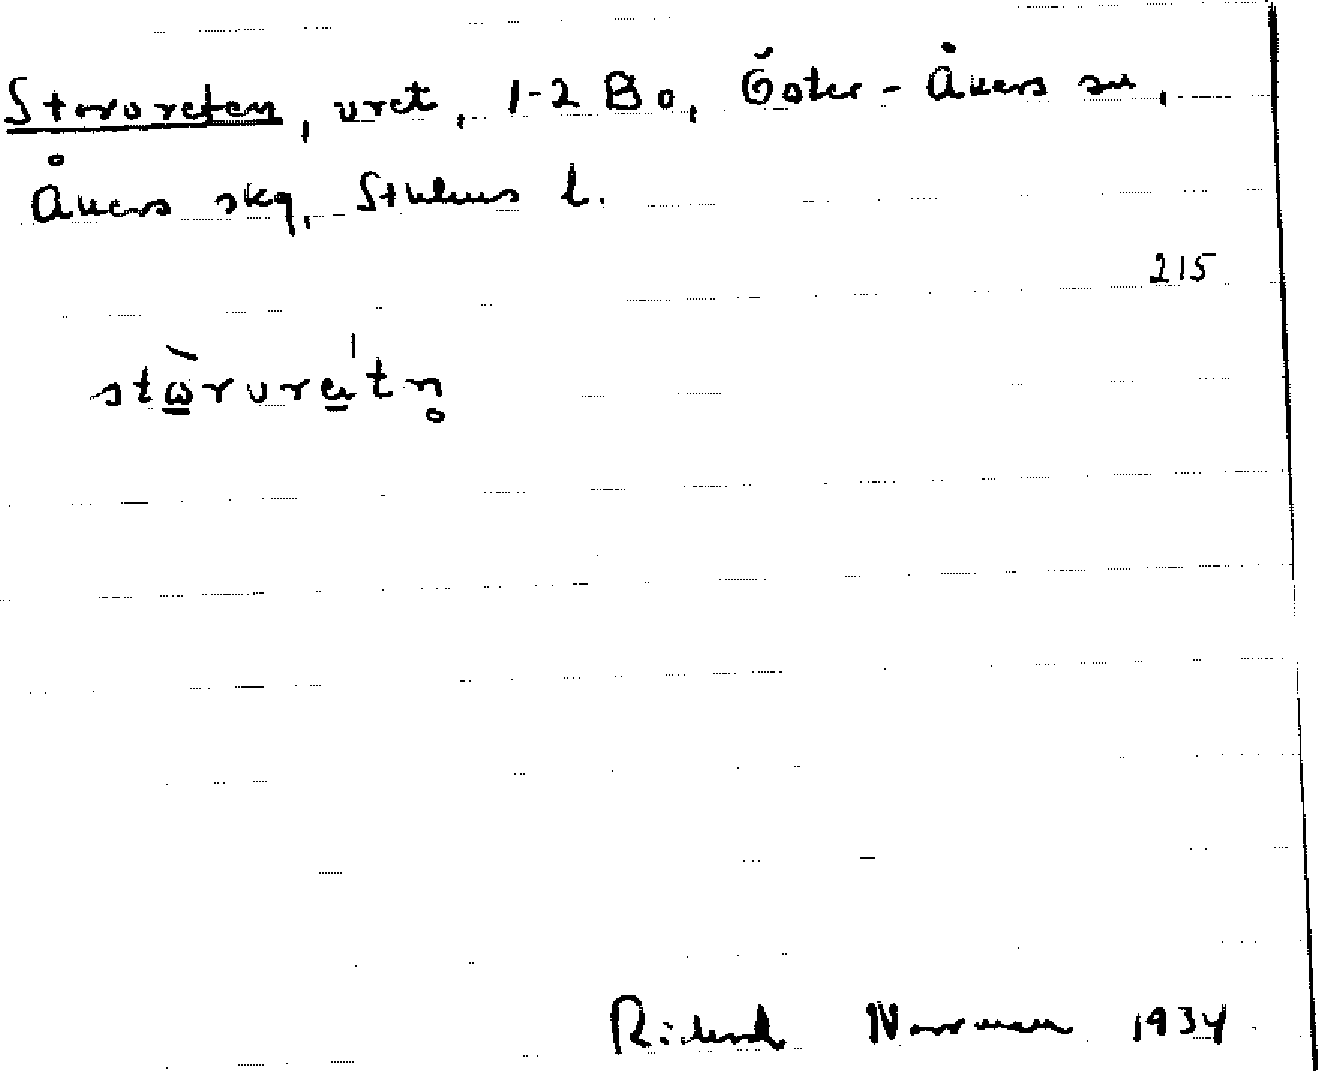 Storvreten, vret, 1-2 Bo, Öster-Åkers sn,
Åkers skg, Sthlms l.
215
stὼrvrα̍tn̥
Rickard Norrman 1934